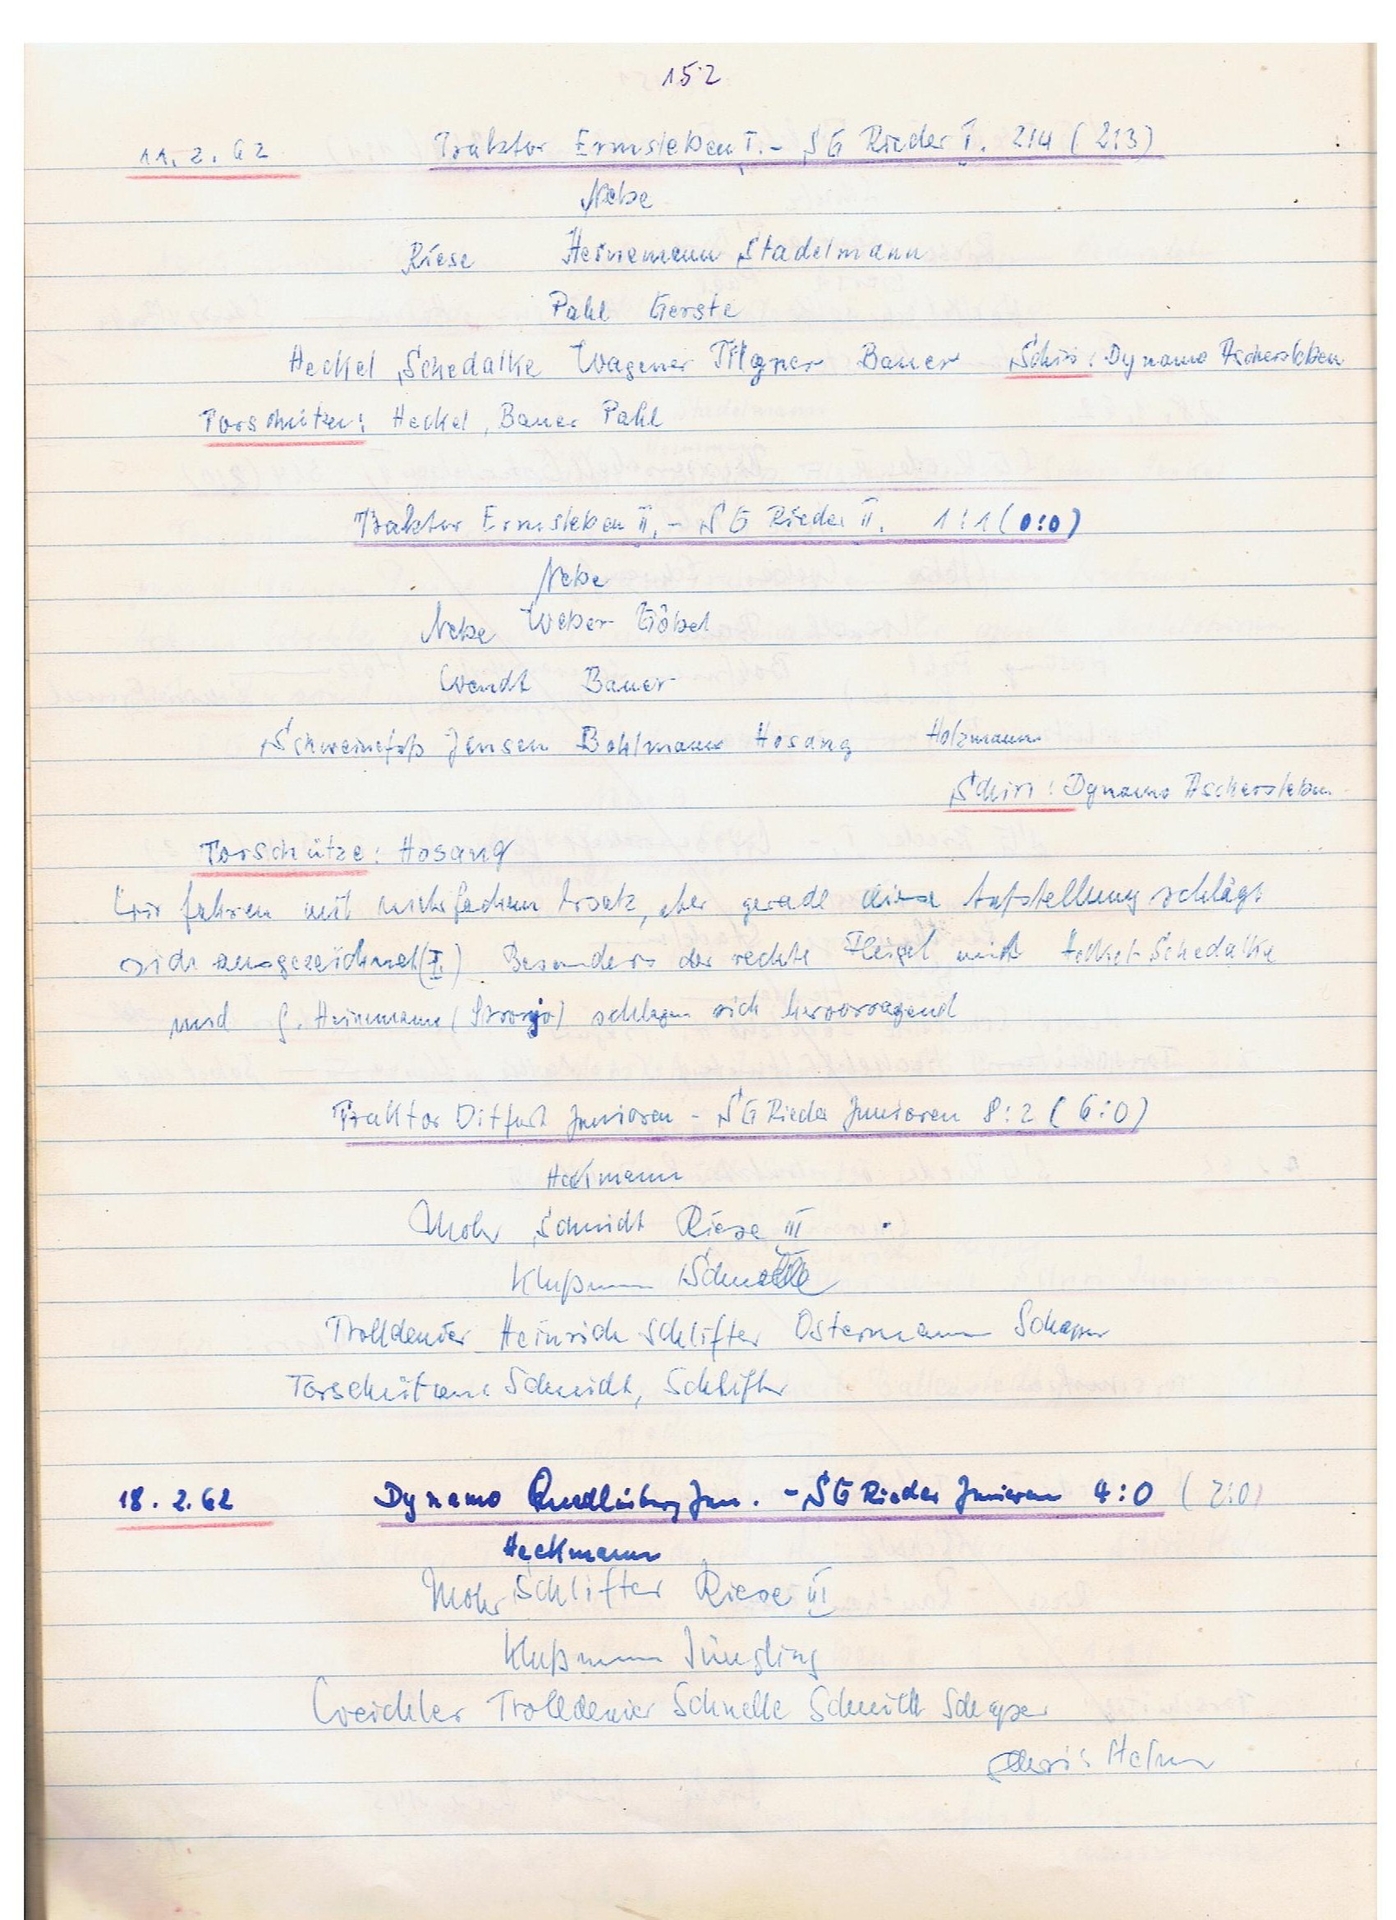 152
11. 2. 62 Traktor Ermsleben I. - SG Rieder I. 2:4 (2:3)
Nebe
Riese Heinemann Stadelmann
Pahl Gerste
Heckel Schedalke Wagener Bauer Schiri: Dynamo Aschersleben
Torschützen: Heckel, Bauer Pahl
Traktor Ermsleben II. - SG Rieder II. 1:1 (0:0)
Nebe
Nebe Weber Göbel
Wendt Bauer
Schweinefuß Jensen Bohlmann Hosang Holzmann
Schiri: Dynamo Aschersleben
Torschütze: Hosang
Wir fahren mit mehrfachem Ersatz, aber gerade diese Aufstellung schlägt
sich ausgezeichnet (I.) Besonders der rechte Flügel mit Heckel-Schedalke
und G. Heinemann ( ) schlagen sich hervorragend
Traktor Ditfurt Junioren - SG Rieder Junioren 8:2 (6:0)
Heckmann
Mohr Schmidt Riese III
Klußmann Schnelle
Trolldenier Heinrich Schlifter Ostermann Schaper
Torschützen: Schmidt, Schlifter
18. 2. 62 Dynamo Quedlinburg Jun. - SG Rieder Junioren 4:0 (2:0)
Heckmann
Mohr Schlifter Riese III
Klußmann Jüngling
Weichler Trolldenier Schnelle Schmidt Schaper